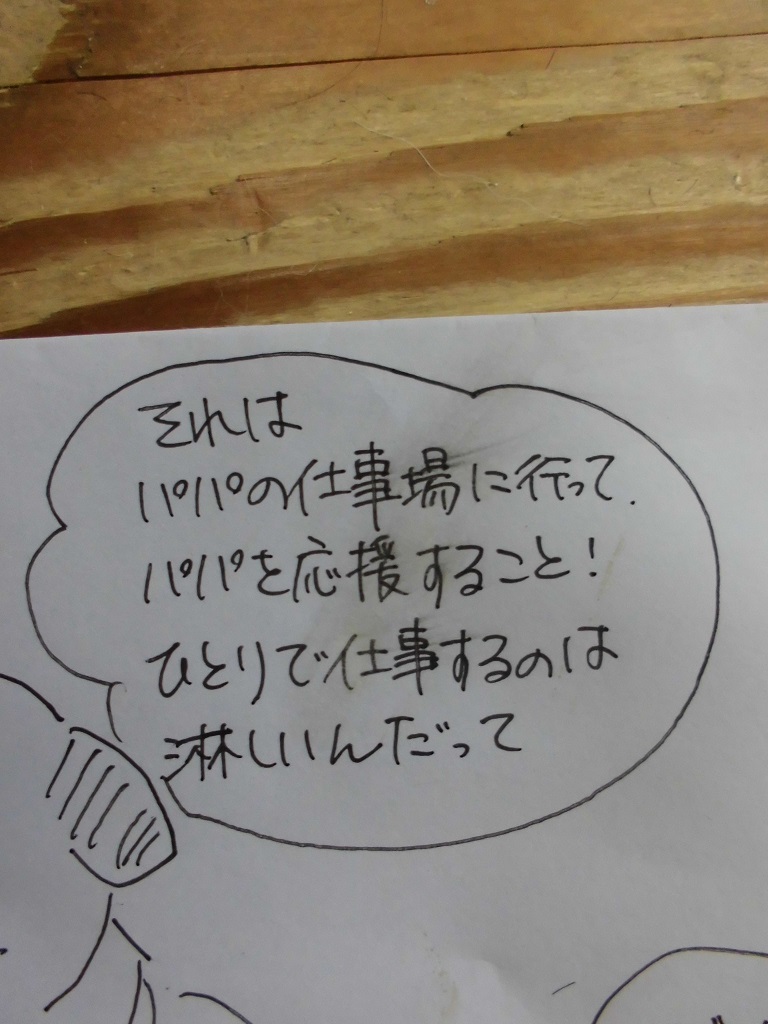 それは
パパの仕事場に行って.
パパを応援すること!
ひとりで仕事するのは
淋しいんだって